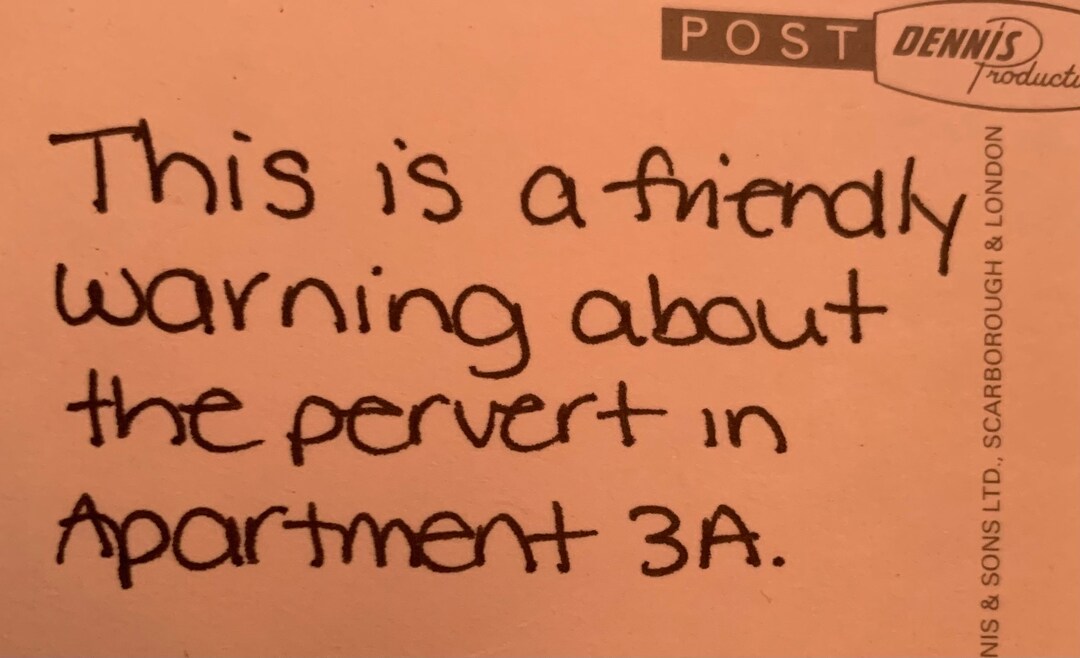 POST
DENNIS
Producti
This is a friendly
warning about
the pervert in
Apartment 3A.
NIS & SONS LTD., SCARBOROUGH & LONDON